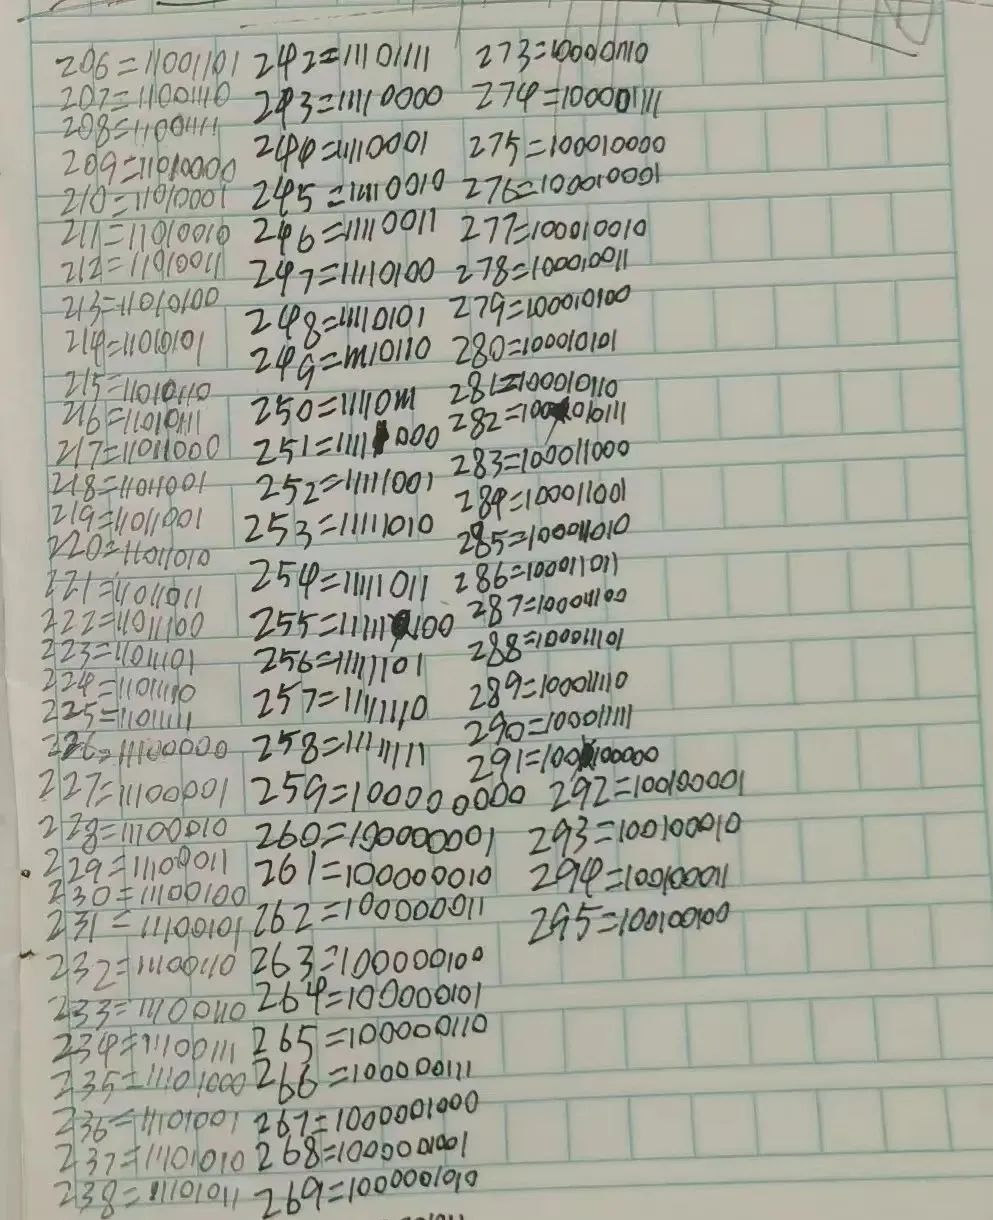 206=11001101
207=11001110
208=11001111
209=11010000
210=11010001
211=11010010
212=11010011
213=11010100
214=11010101
215=11010110
216=11010111
217=11011000
218=11011001
219=11011001
220=11011010
221=11011011
222=11011100
223=11011101
224=11011110
225=11011111
226=11100000
227=11100001
228=11100010
229=11100011
230=11100100
231=11100101
232=11100110
233=11100110
234=11100111
235=11101000
236=11101001
237=11101010
238=11101011
242=11101111
243=11110000
244=11110001
245=11110010
246=11110011
247=11110100
248=11110101
249=11110110
250=11110111
251=11111000
252=11111001
253=11111010
254=11111011
255=11111100
256=11111101
257=11111110
258=11111111
259=100000000
260=100000001
261=100000010
262=100000011
263=100000100
264=100000101
265=100000110
266=100000111
267=1000001000
268=1000001001
269=1000001010
273=100001110
274=100001111
275=100010000
276=100010001
277=100010010
278=100010011
279=100010100
280=100010101
281=100010110
282=100010111
283=100011000
284=100011001
285=100011010
286=100011011
287=100011100
288=100011101
289=100011110
290=100011111
291=100100000
292=100100001
293=100100010
294=100100011
295=100100100